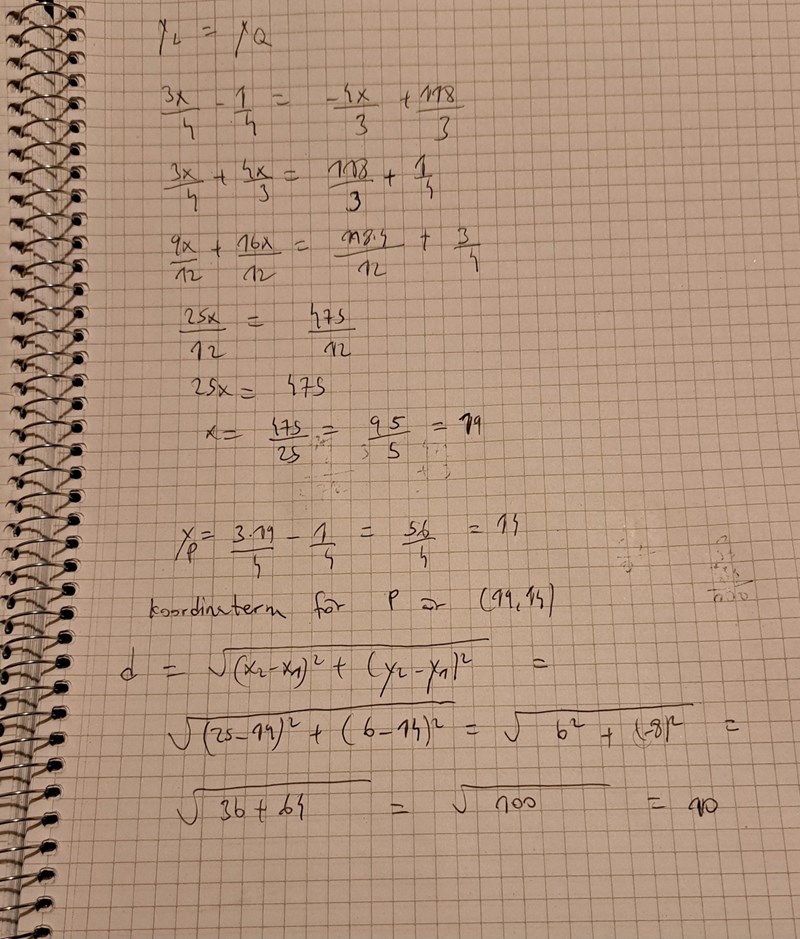 y_L = y_Q
3x/4 - 1/4 = -4x/3 + 118/3
3x/4 + 4x/3 = 118/3 + 1/4
9x/12 + 16x/12 = 118·4/12 + 3/4
25x/12 = 475/12
25x = 475
x = 475/25 = 95/5 = 19
y_P = 3·19/4 - 1/4 = 56/4 = 14
koordinatern för P är (19,14)
d = √((x₂-x₁)² + (y₂-y₁)²) =
√((25-19)² + (6-14)²) = √(6² + (-8)²) =
√(36+64) = √100 = 10